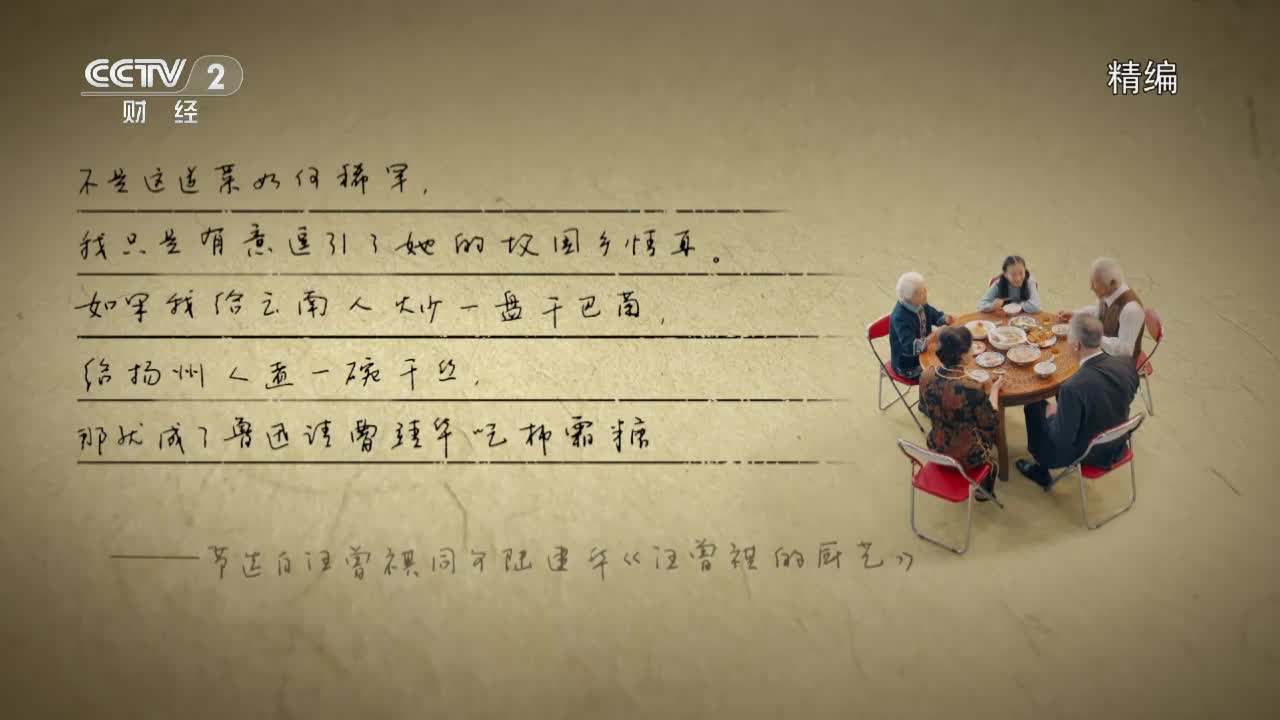 CCTV 2
财经
精编
不是这道菜如何稀罕，
我只是有意逗引了她的故国乡情耳。
如果我给云南人炒一盘干巴菌，
给扬州人煮一碗干丝，
那就成了鲁迅请曹靖华吃柿霜糖
——节选自汪曾祺同乡陆建华《汪曾祺的厨艺》